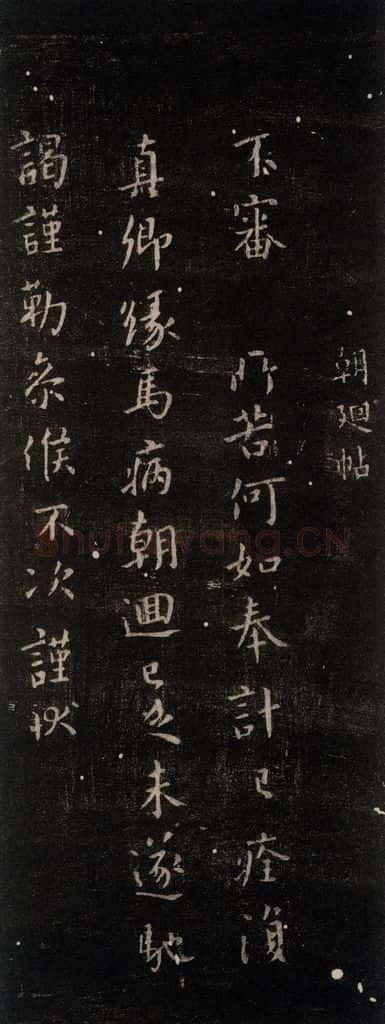 朝迴帖
不審 所苦何如奉計已痊損
真卿緣馬病朝迴已乏未遂馳
謁謹勒參候不次謹狀